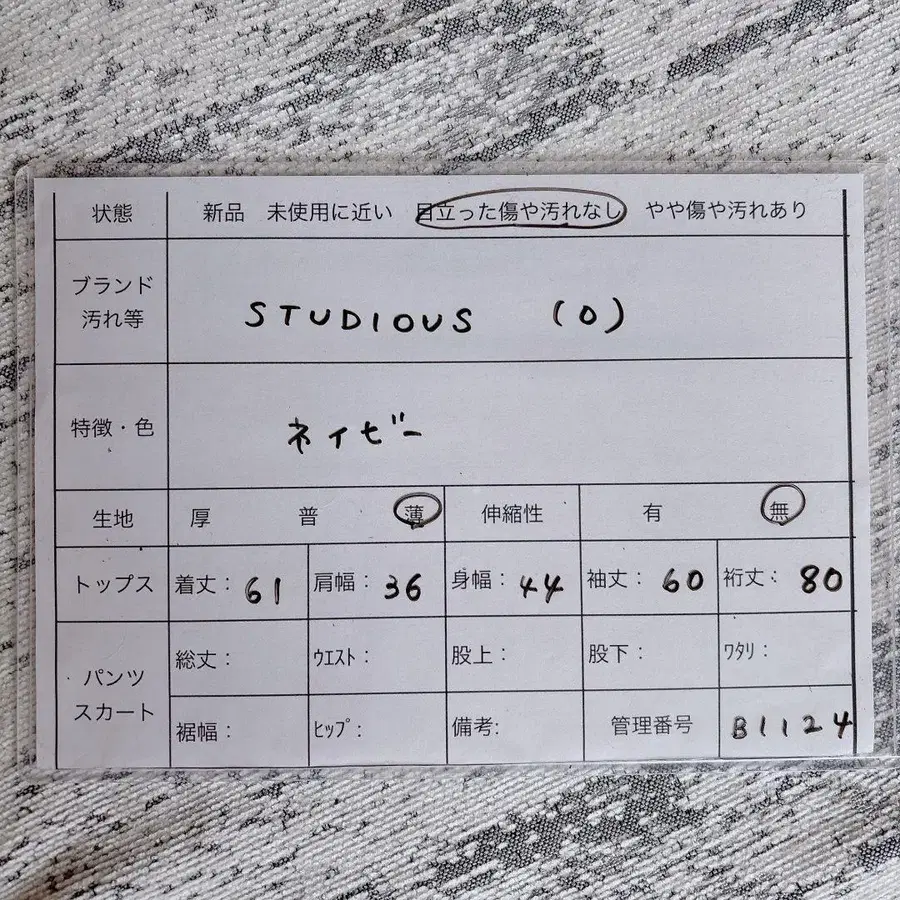 状態 新品 未使用に近い 目立った傷や汚れなし やや傷や汚れあり
ブランド
汚れ等
STUDIOUS (0)
特徴・色 ネイビー
生地 厚 普 薄 伸縮性 有 無
トップス 着丈: 61 肩幅: 36 身幅: 44 袖丈: 60 裄丈: 80
パンツ
スカート
総丈: ウエスト: 股上: 股下: ワタリ:
裾幅: ヒップ: 備考: 管理番号 B1124